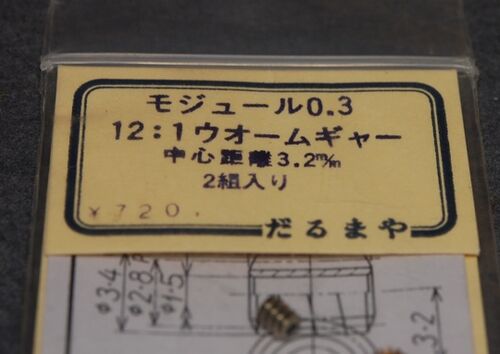 モジュール0.3
12:1ウオームギャー
中心距離3.2m/m
2組入り
¥720.
だるまや
φ3.4
φ2.8
φ1.5
3.2